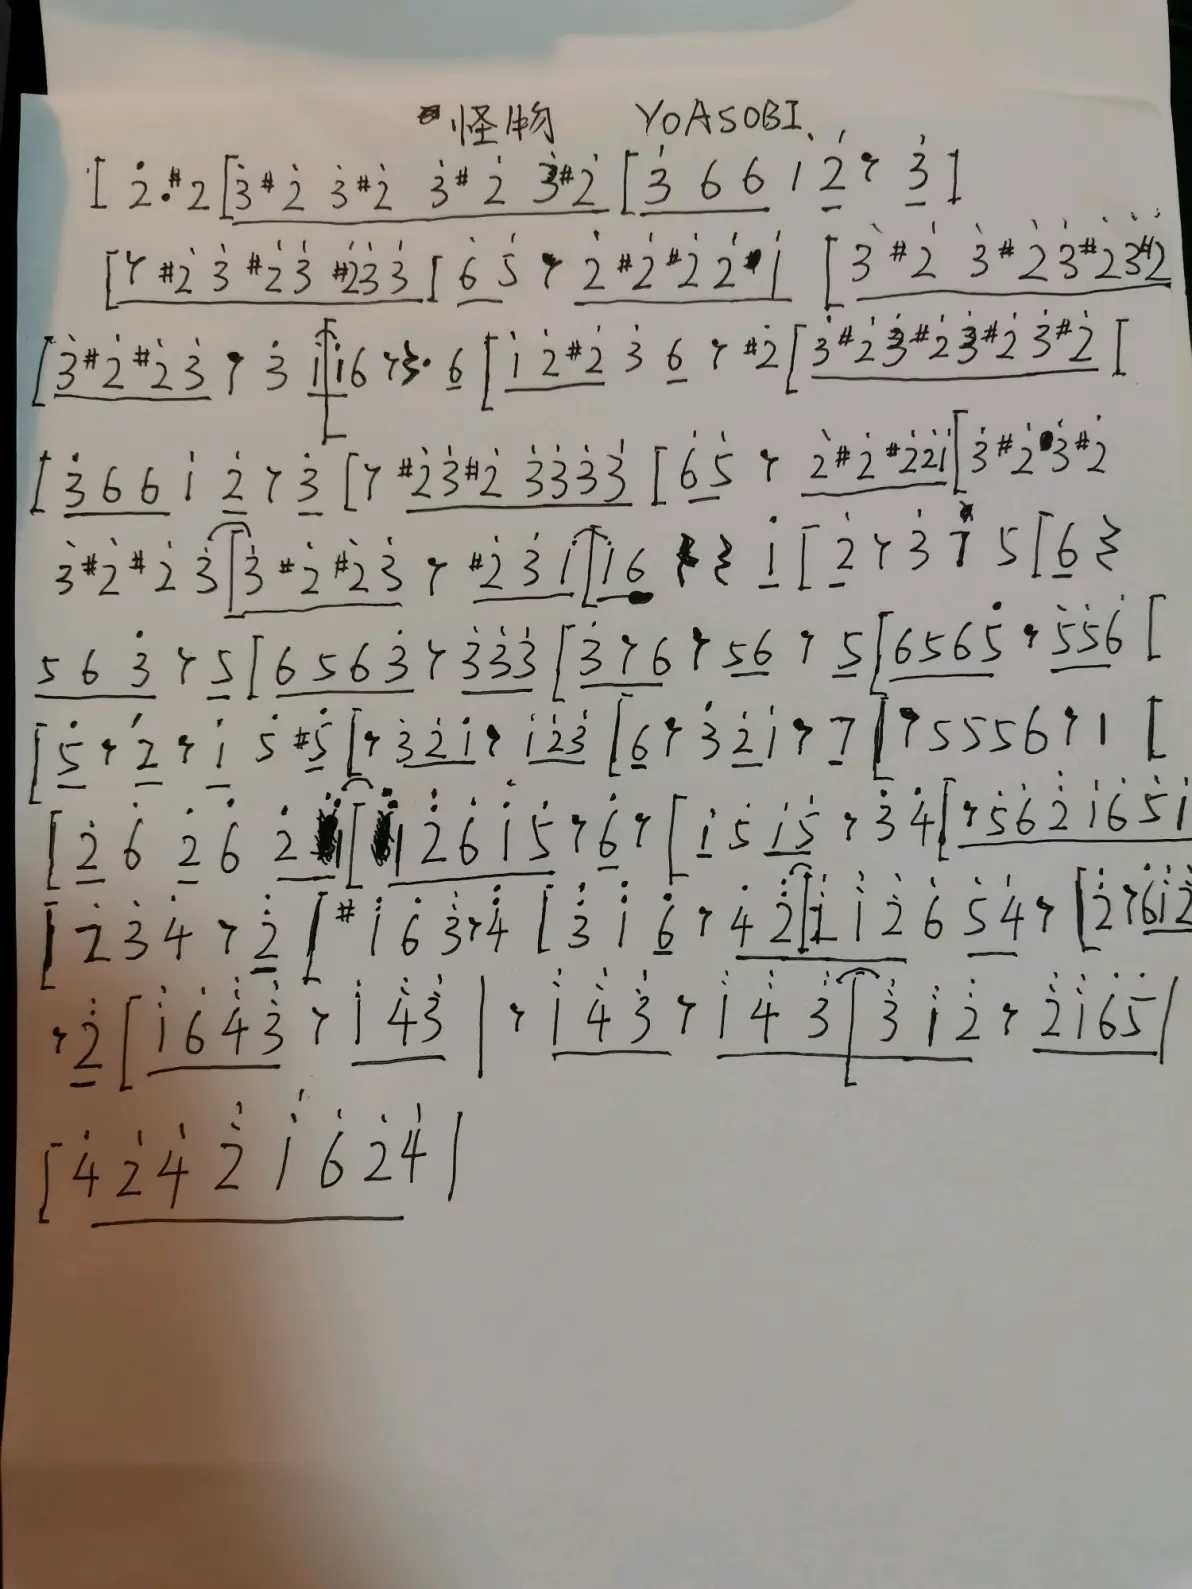 怪物 YOASOBI
[ 2̇ · #2 [ 3̇ #2̇ 3̇ #2̇ 3̇ #2̇ 3̇ #2̇ [ 3̇ 6 6 1 2̇ 𝄾 3̇ ]
[ 𝄾 #2̇ 3̇ #2̇ 3̇ #2̇ 3̇ 3̇ [ 6̇ 5̇ 𝄾 2̇ #2̇ #2̇ 2̇ 1̇ [ 3̇ #2̇ 3̇ #2̇ 3̇ #2̇ 3̇ #2̇
[ 3̇ #2̇ #2̇ 3̇ 𝄾 3̇ 1̇ [ 1̇ 6 𝄾 𝄽 · 6 [ 1̇ 2̇ #2̇ 3̇ 6 𝄾 #2̇ [ 3̇ #2̇ 3̇ #2̇ 3̇ #2̇ 3̇ #2̇ [
[ 3̇ 6 6 1̇ 2̇ 𝄾 3̇ [ 𝄾 #2̇ 3̇ #2̇ 3̇ 3̇ 3̇ 3̇ [ 6̇ 5̇ 𝄾 2̇ #2̇ #2̇ 2̇ 1̇ [ 3̇ #2̇ 3̇ #2̇
3̇ #2̇ #2̇ 3̇ [ 3̇ #2̇ #2̇ 3̇ 𝄾 #2̇ 3̇ 1̇ [ 1̇ 6 𝄽 𝄽 1̇ [ 2̇ 𝄾 3̇ 7 5 [ 6 𝄽
5 6 3̇ 𝄾 5 [ 6 5 6 3̇ 𝄾 3̇ 3̇ 3̇ [ 3̇ 𝄾 6 𝄾 5 6 𝄾 5 [ 6 5 6 5̇ 𝄾 5̇ 5̇ 6̇ [
[ 5̇ 𝄾 2̇ 𝄾 1̇ 5̇ #5̇ [ 𝄾 3̇ 2̇ 1̇ 𝄾 1̇ 2̇ 3̇ [ 6̇ 𝄾 3̇ 2̇ 1̇ 𝄾 7 [ 𝄾 5 5 5 6 𝄾 1 [
[ 2̇ 6̇ 2̇ 6̇ 2̇ 1̇ [ 1̇ 2̇ 6̇ 1̇ 5̇ 𝄾 6̇ 𝄾 [ 1̇ 5 1̇ 5̇ 𝄾 3̇ 4̇ [ 𝄾 5̇ 6̇ 2̇ 1̇ 6̇ 5̇ 1̇
[ 2̇ 3̇ 4̇ 𝄾 2̇ [ #1̇ 6̇ 3̇ 𝄾 4̇ [ 3̇ 1̇ 6̇ 𝄾 4̇ 2̇ [ 2̇ 1̇ 2̇ 6̇ 5̇ 4̇ 𝄾 [ 2̇ 𝄾 6̇ 1̇ 2̇
𝄾 2̇ [ 1̇ 6̇ 4̇ 3̇ 𝄾 1̇ 4̇ 3̇ | 𝄾 1̇ 4̇ 3̇ 𝄾 1̇ 4̇ 3̇ [ 3̇ 1̇ 2̇ 𝄾 2̇ 1̇ 6̇ 5̇ |
[ 4̇ 2̇ 4̇ 2̇ 1̇ 6̇ 2̇ 4̇ |